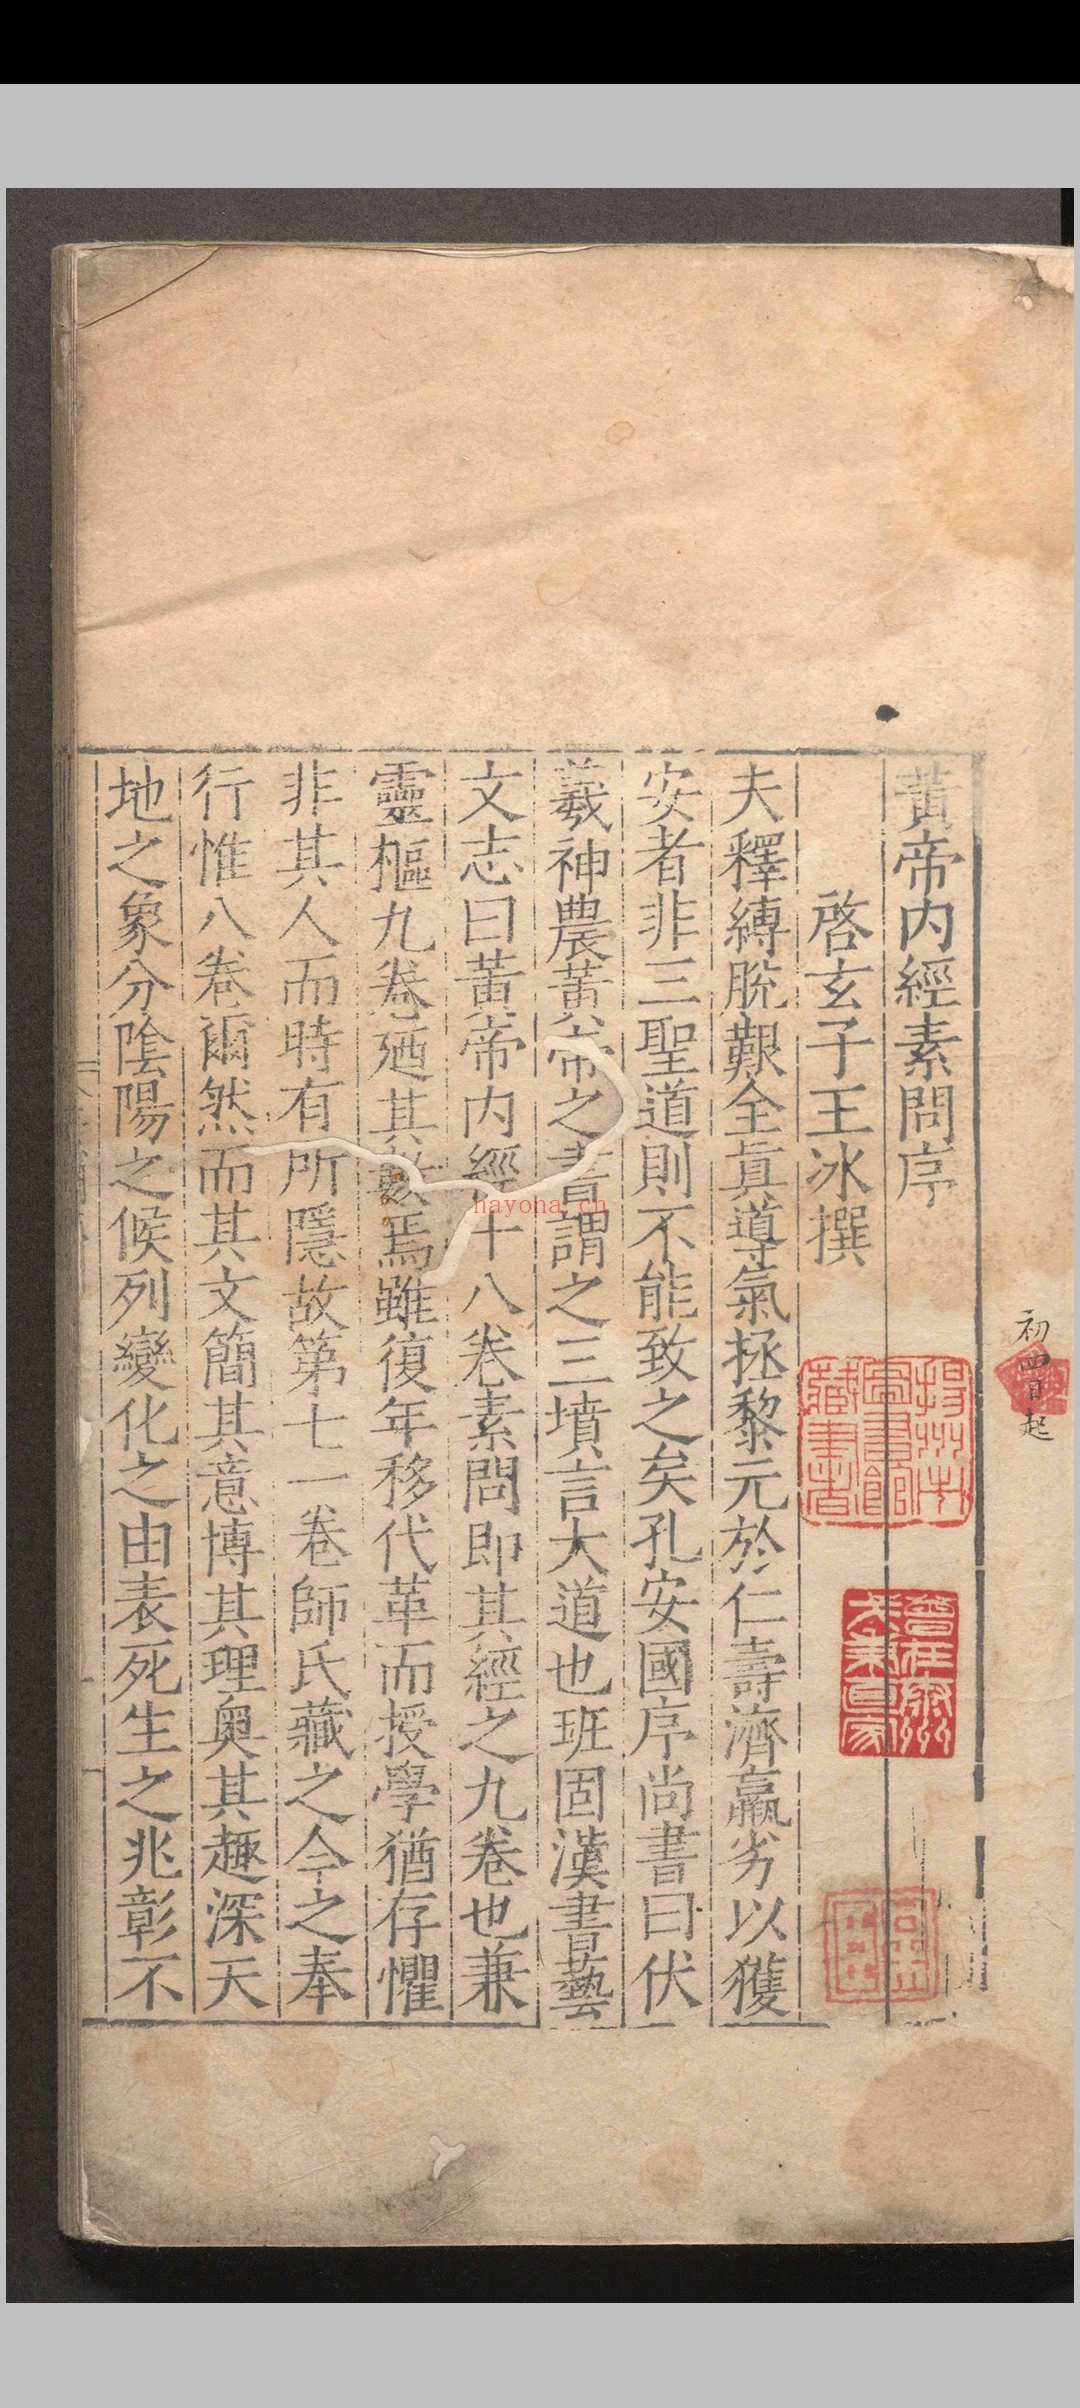 黃帝内經素問序
啓玄子王冰撰
夫釋縛脫艱全眞導氣拯黎元於仁壽濟羸劣以獲
安者非三聖道則不能致之矣孔安國序尚書曰伏
羲神農黃帝之書謂之三墳言大道也班固漢書藝
文志曰黃帝内經十八卷素問即其經之九卷也兼
靈樞九卷廼其數焉雖復年移代革而授學猶存懼
非其人而時有所隱故第七一卷師氏藏之今之奉
行惟八卷爾然而其文簡其意博其理奥其趣深天
地之象分陰陽之候列變化之由表死生之兆彰不
初四日起
揚州市
圖書館
藏書者
hayona.cn